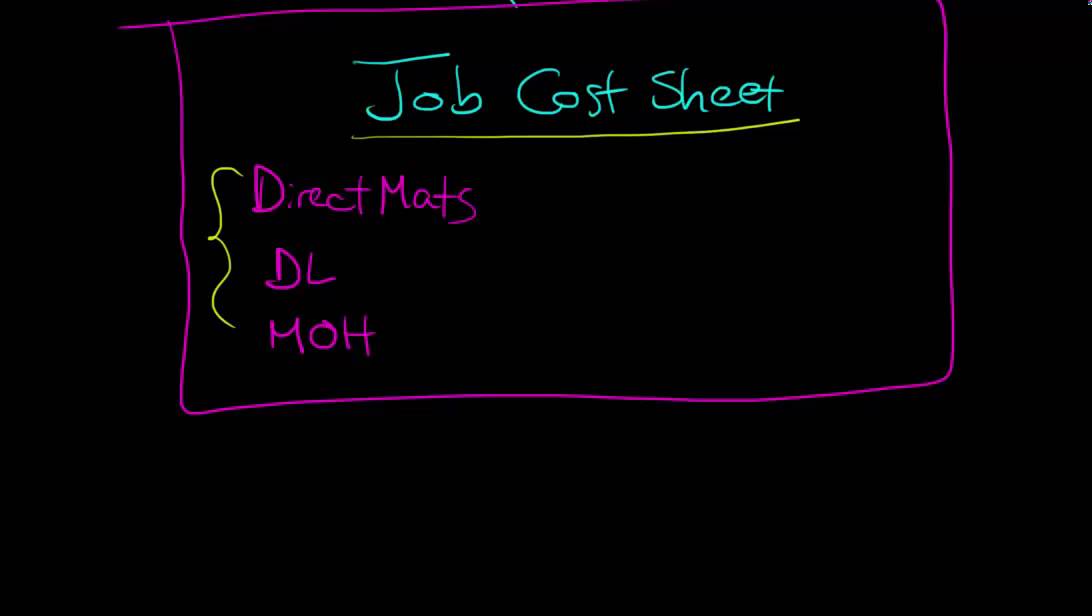 Job Cost Sheet
Direct Mats
DL
MOH